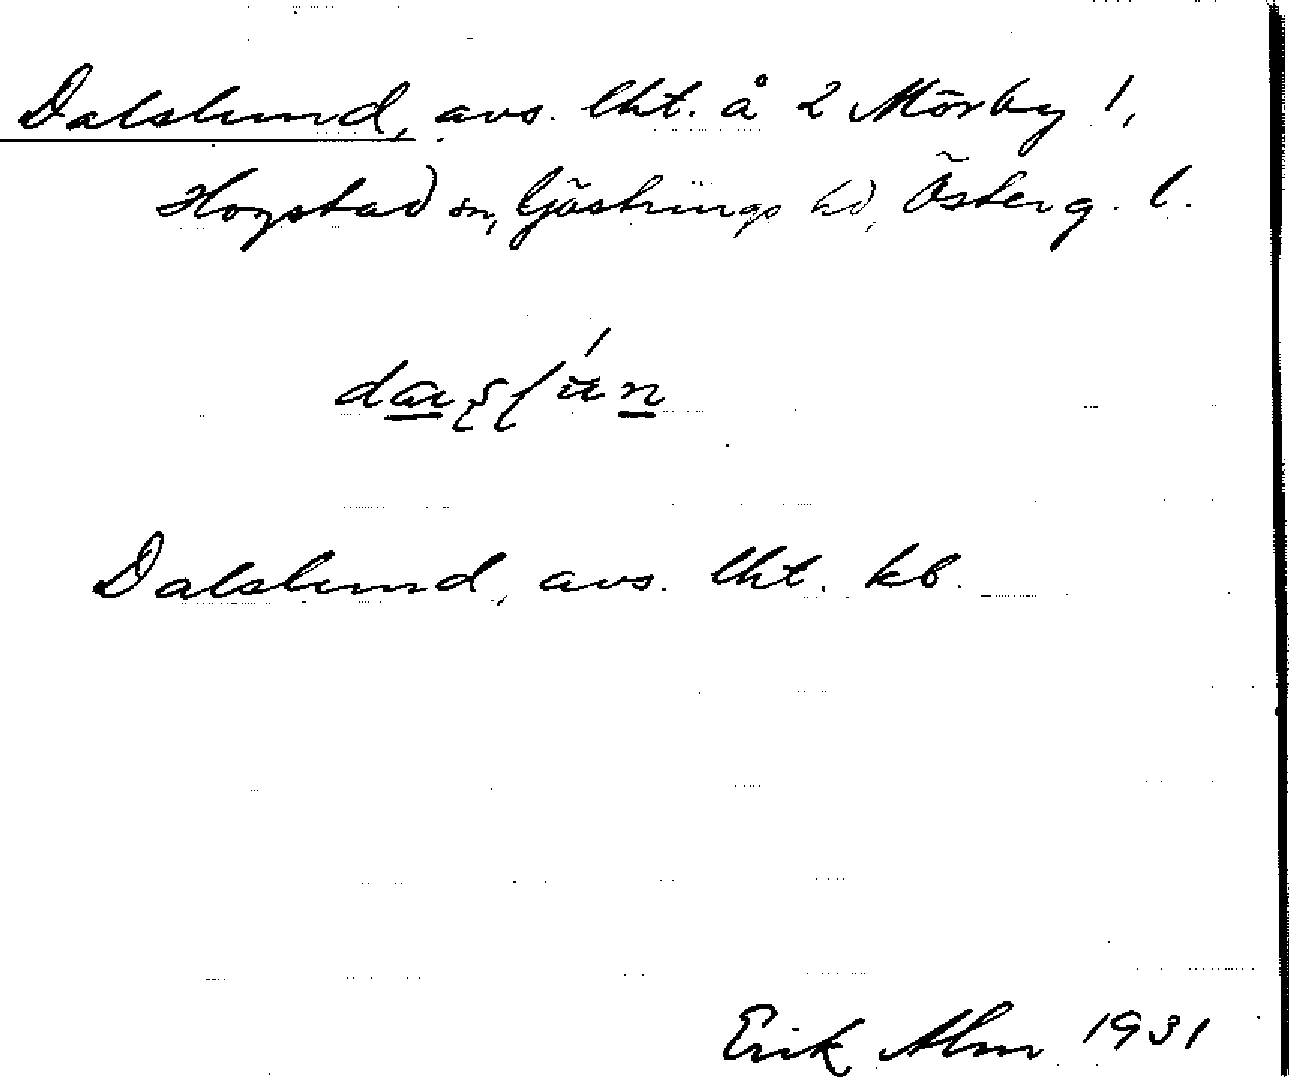 Dalslund, avs. lht. å 2 Mörby 1,
Hogstad sn, Göstrings hd, Österg. l.
Dalslund, avs. lht. kb.
Erik Alm 1931